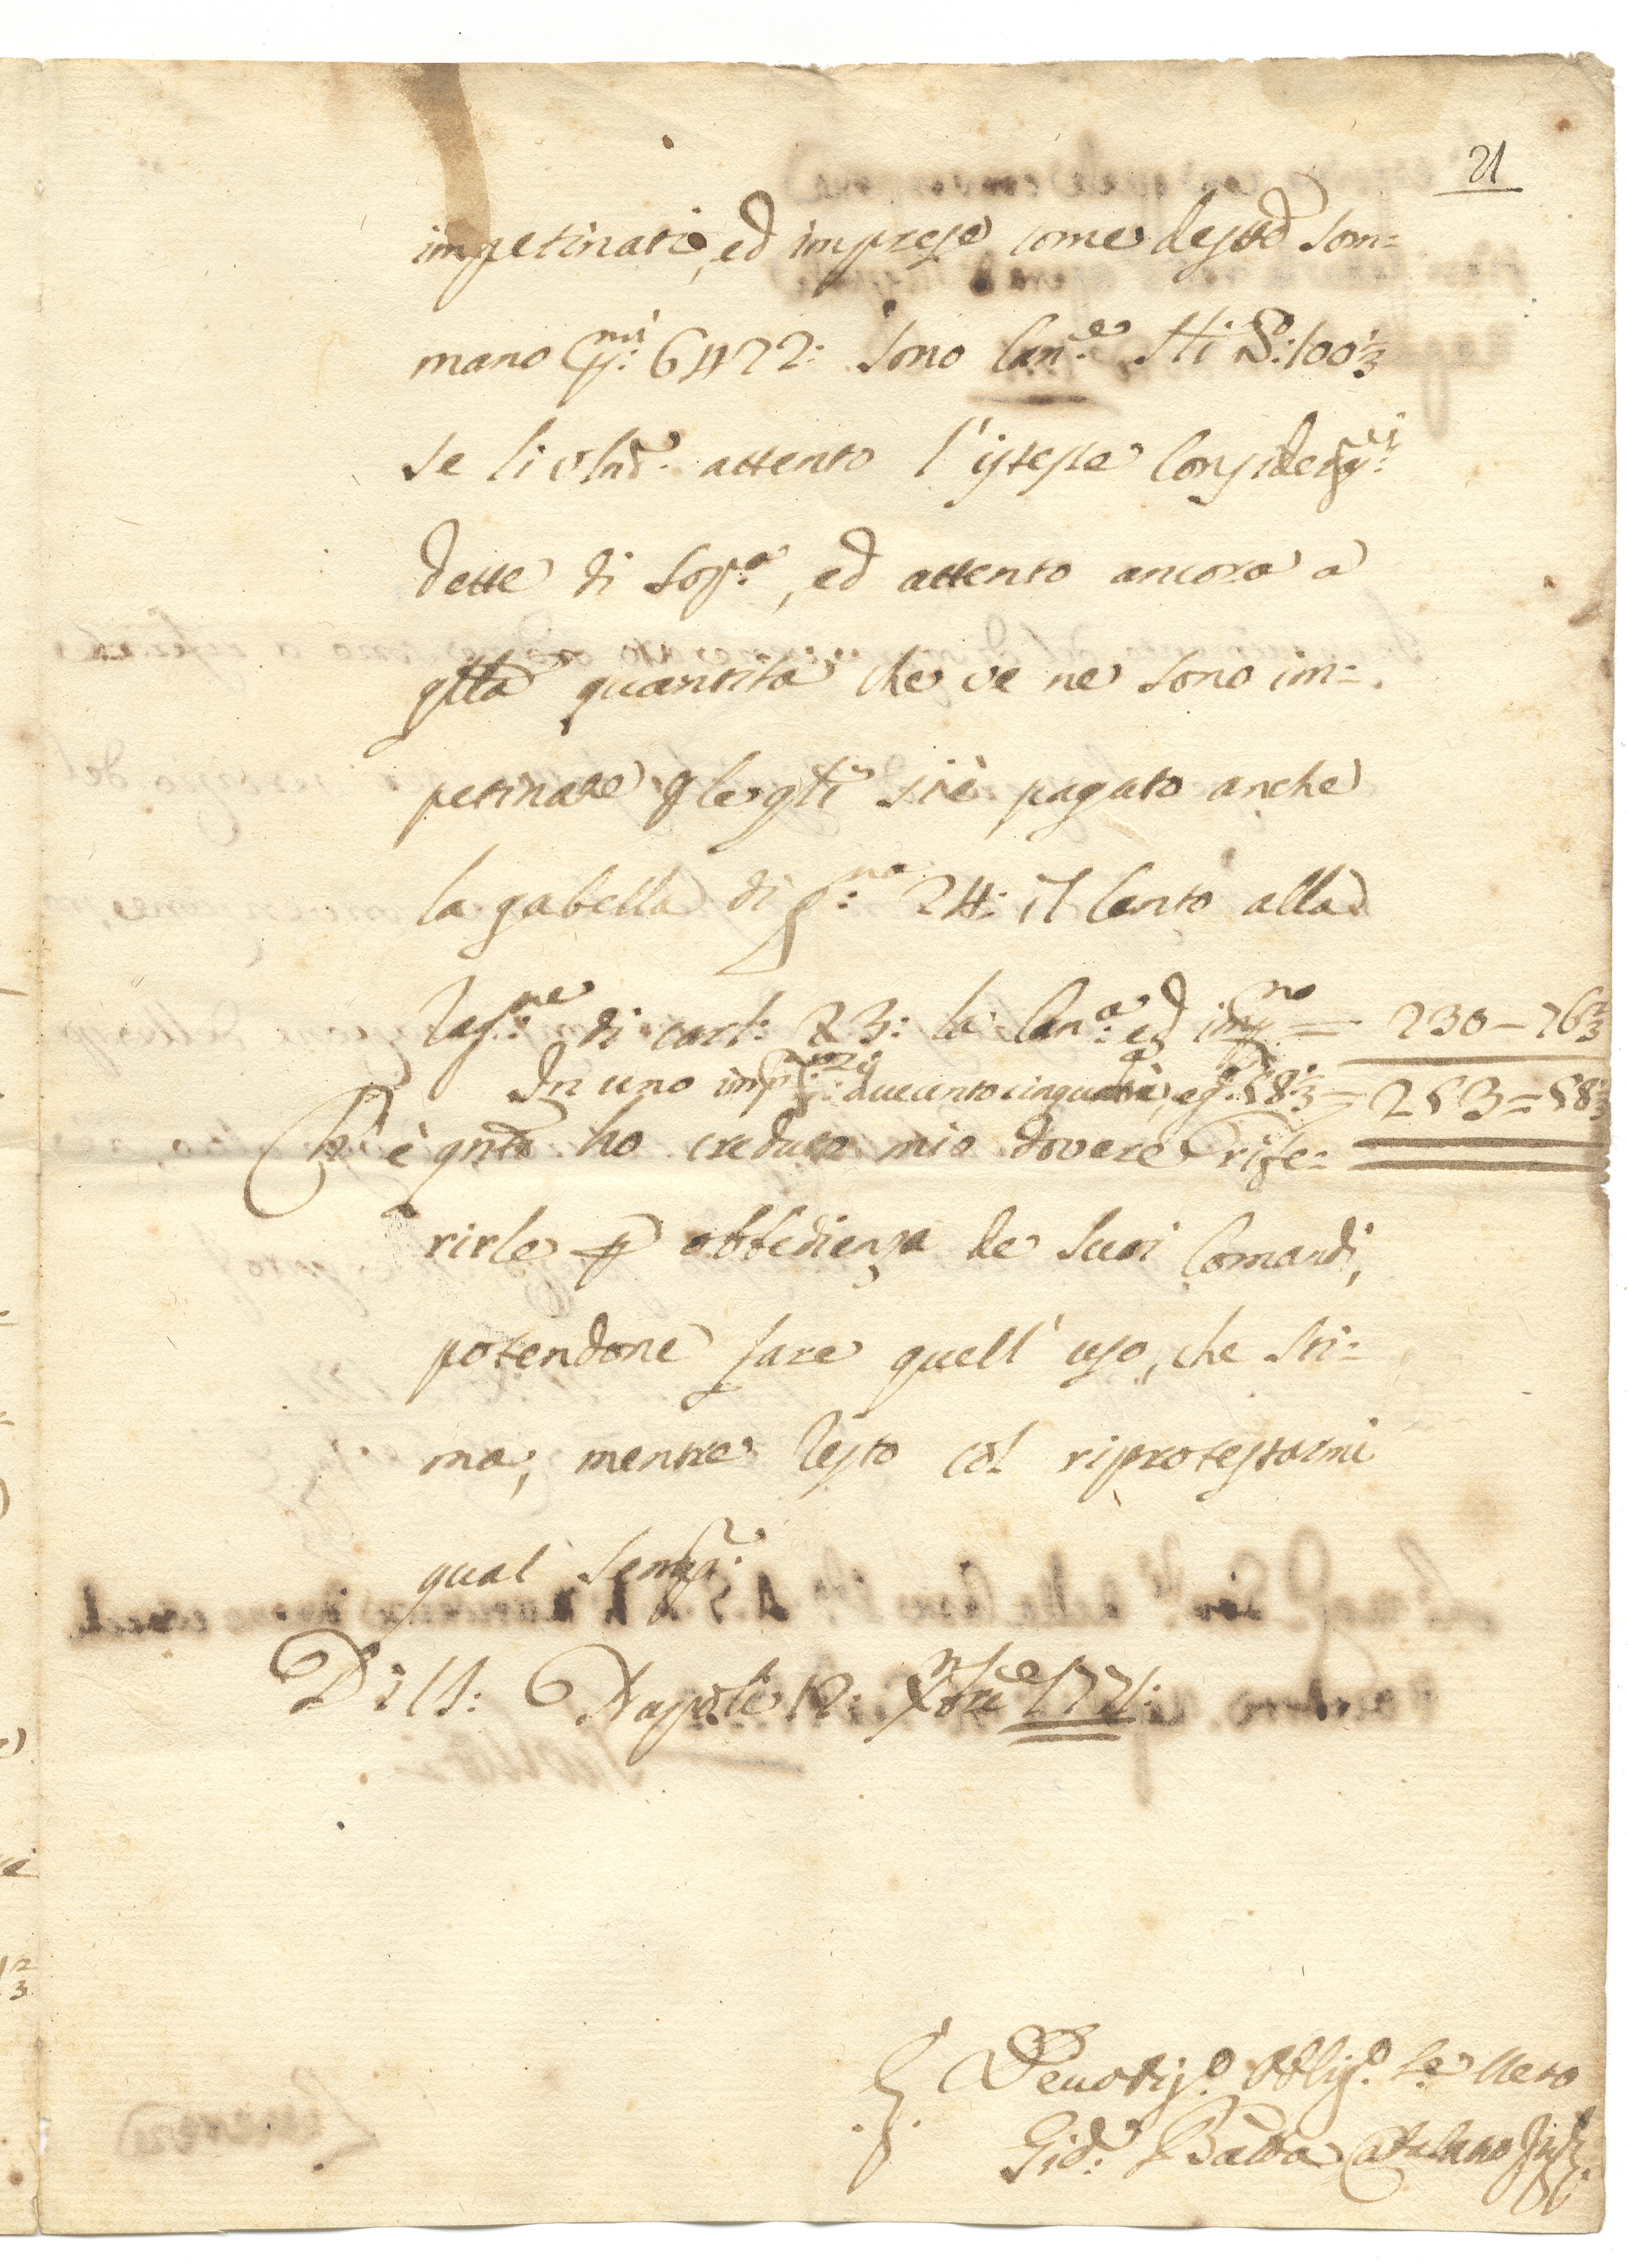 21
impetinati, ed imprese come destd. som=
mano pmi: 6472: sono Cane. Sti S: 100⅓
se li attento l'istesse Consideqni:
dette di Sopa, ed attento ancora a
qlla quantità che ve ne sono im=
petinate p le qli si è pagato anche
la gabella di gna: 24: il Cento alla
ragne: di carl: 23: la Cana: ed impno = 230-76⅔
In uno impno: ducento cinquanta e g. 58⅓ = 253=58⅓
Ch'è qnto ho creduto mio dovere rife=
rirle p obbedienza de suoi Comandi,
potendone fare quell' uso, che sti=
ma, mentre resto col riprotestarmi
qual sempr.
Di V.S. Napoli 12: Xbre 1771:
Devotiso. Obligo. Se. Vero
Gio: Batta Catalano